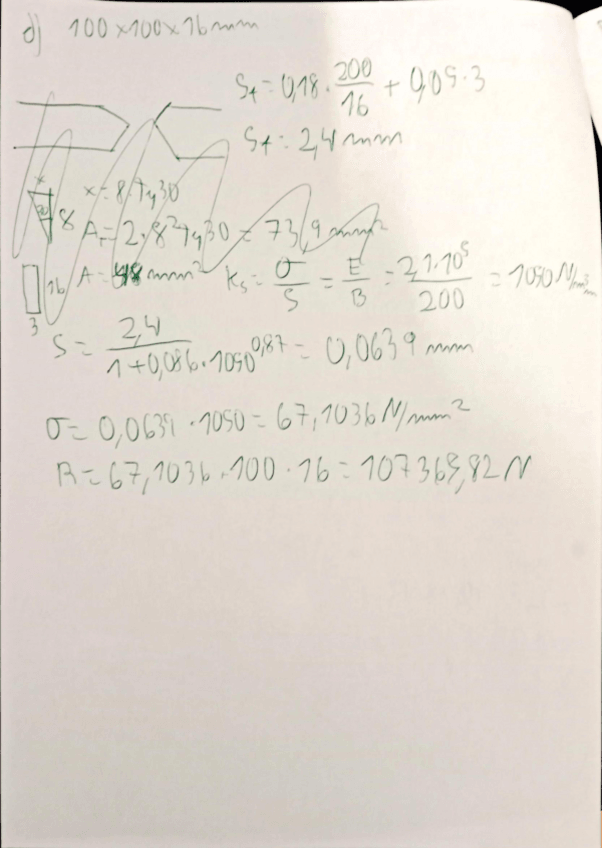 d) 100×100×16mm
S_t = 0,18 · 200/16 + 0,05 · 3
S_t = 2,4 mm
x = 8 · tg30
x
30
8
A_t = 2 · 8² tg30 = 73,9 mm²
16
3
A = 48 mm²
K_s = σ/S = E/B = 2,1·10⁵/200 = 1050 N/mm³
S = 2,4/(1+0,086·1050^0,87) = 0,0639 mm
σ = 0,0639 · 1050 = 67,1036 N/mm²
R = 67,1036 · 100 · 16 = 107365,82 N